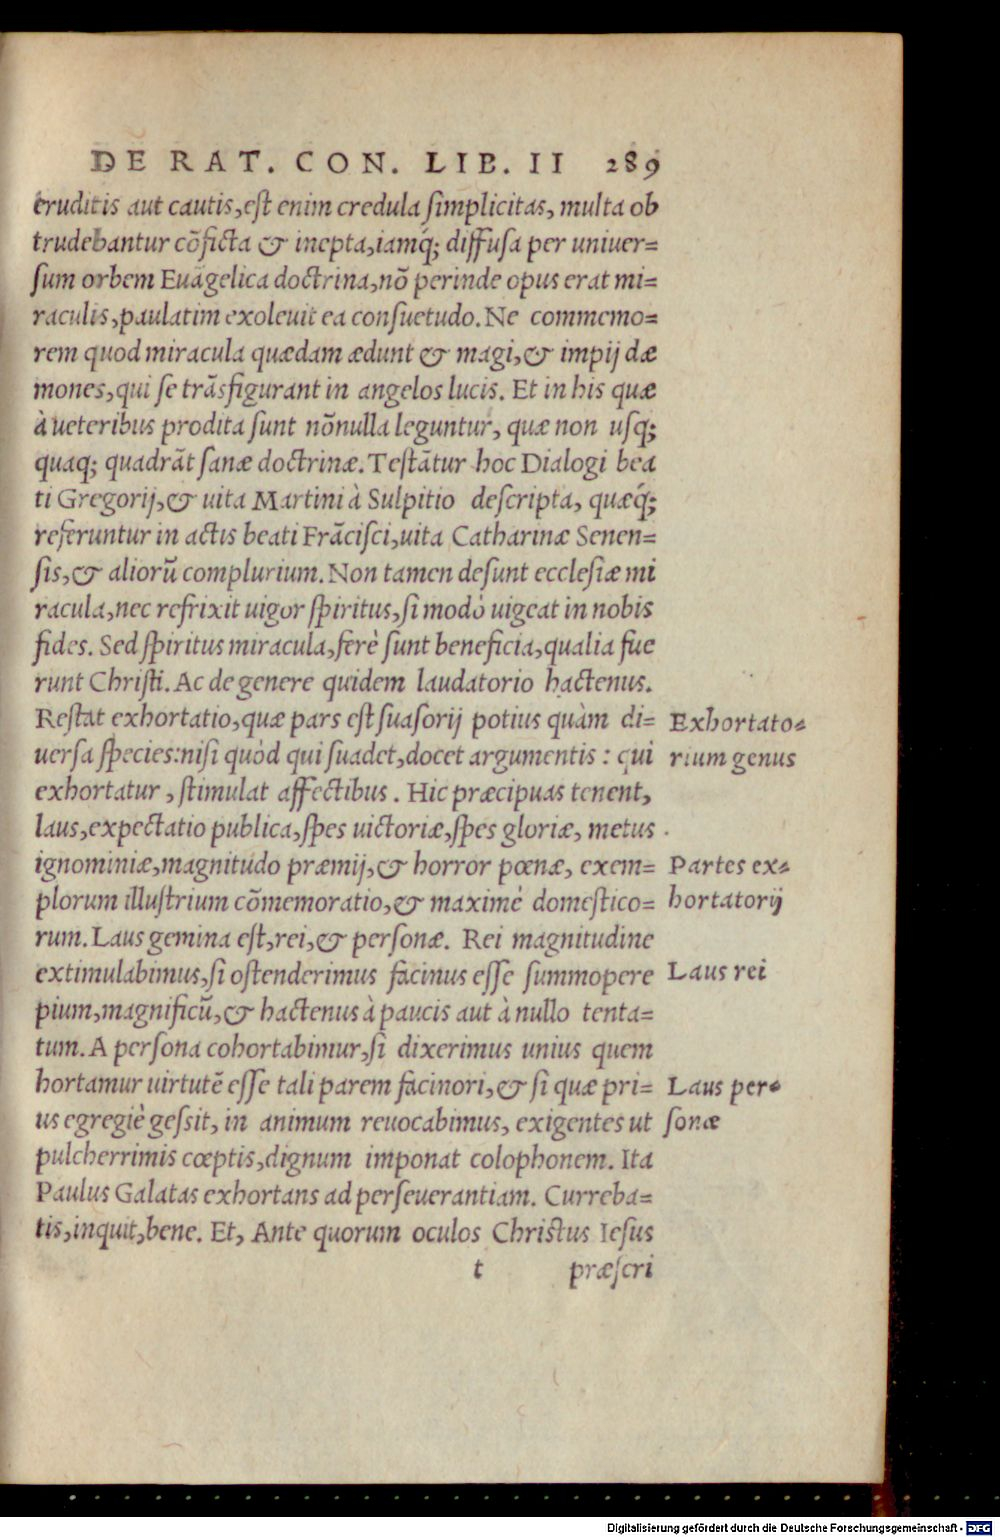 DE RAT. CON. LIB. II 289
eruditis aut cautis, est enim credula simplicitas, multa ob
trudebantur cõficta & inepta, iamq́; diffusa per uniuer=
sum orbem Euãgelica doctrina, nõ perinde opus erat mi=
raculis, paulatim exoleuit ea consuetudo. Ne commemo=
rem quod miracula quædam ædunt & magi, & impij dæ
mones, qui se trãsfigurant in angelos lucis. Et in his quæ
à ueteribus prodita sunt nõnulla leguntur, quæ non usq;
quaq; quadrãt sanæ doctrinæ. Testãtur hoc Dialogi bea
ti Gregorij, & uita Martini à Sulpitio descripta, quæq́;
referuntur in actis beati Frãcisci, uita Catharinæ Senen=
sis, & aliorũ complurium. Non tamen desunt ecclesiæ mi
racula, nec refrixit uigor spiritus, si modò uigeat in nobis
fides. Sed spiritus miracula, ferè sunt beneficia, qualia fue
runt Christi. Ac de genere quidem laudatorio hactenus.
Restat exhortatio, quæ pars est suasorij potius quàm di=
uersa species: nisi quòd qui suadet, docet argumentis : qui
exhortatur, stimulat affectibus. Hic præcipuas tenent,
laus, expectatio publica, spes uictoriæ, spes gloriæ, metus
ignominiæ, magnitudo præmij, & horror pœnæ, exem=
plorum illustrium cõmemoratio, & maximè domestico=
rum. Laus gemina est, rei, & personæ. Rei magnitudine
extimulabimus, si ostenderimus facinus esse summopere
pium, magnificũ, & hactenus à paucis aut à nullo tenta=
tum. A persona cohortabimur, si dixerimus unius quem
hortamur uirtutẽ esse tali parem facinori, & si quæ pri=
us egregiè gessit, in animum reuocabimus, exigentes ut
pulcherrimis cœptis, dignum imponat colophonem. Ita
Paulus Galatas exhortans ad perseuerantiam. Curreba=
tis, inquit, bene. Et, Ante quorum oculos Christus Iesus
t præscri
Exhortato=
rium genus
Partes ex=
hortatorij
Laus rei
Laus per=
sonæ
Digitalisierung gefördert durch die Deutsche Forschungsgemeinschaft - DFG